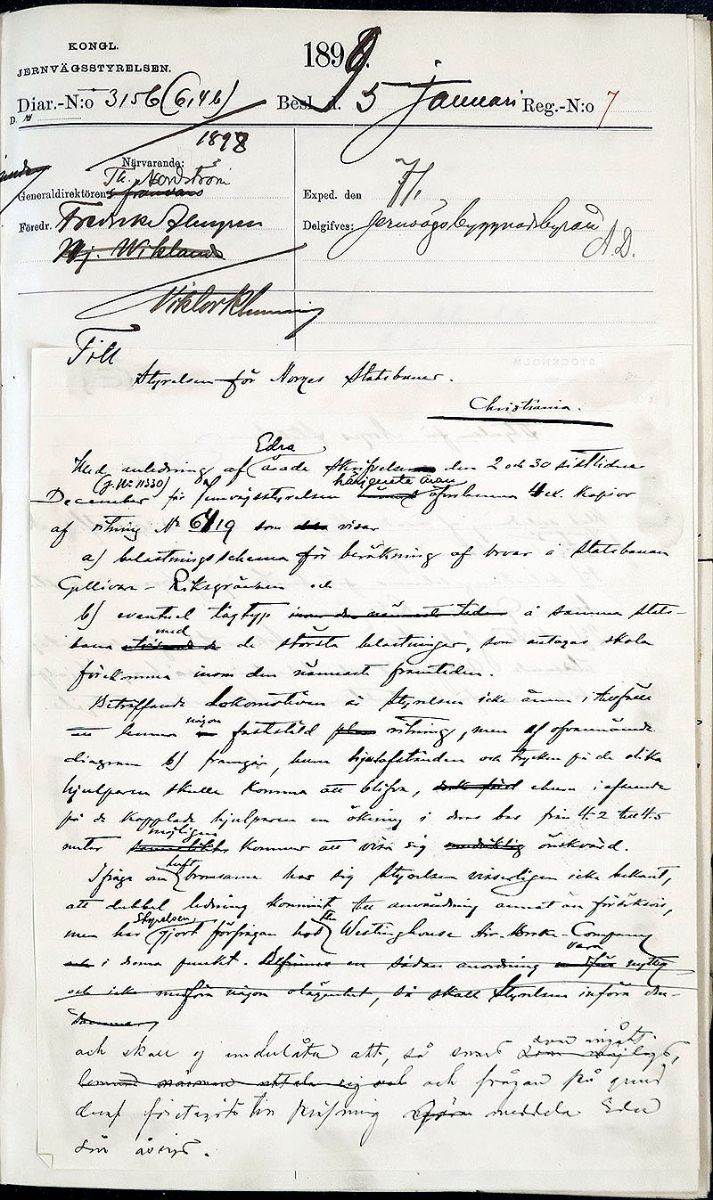 KONGL.
JERNVÄGSSTYRELSEN.
1899.
Diar.-N:o 3156 (6,46) Besl. d. 5 Januari Reg.-N:o 7
1898
Närvarande:
Th. Nordström
Generaldirektören
Exped. den 7/1
Föredr. Fredrik Almgren
Delgifves: Jernvägsbyggnadsbyrån
A.D.
Wj. Wiklund
Viktor Klemming
Till
Styrelsen för Norges Statsbaner.
Christiania.
Med anledning af Edra ärade skrifvelser den 2 och 30 sistlidne
December (J. No 11330) får Jernvägsstyrelsen härigenom äran öfverlemna 4 ex. kopior
af ritning No 6419 som visar
a) belastningsschema för beräkning af broar å statsbanan
Gellivare - Riksgränsen och
b) eventuel tågtyp å samma stats-
bana med de största belastningar, som antagas skola
förekomma inom den närmaste framtiden.
Beträffande Lokomotiven är Styrelsen icke ännu i tillfälle
att lemna någon fastställd ritning, men af ofvannämnde
diagram b) framgår, huru hjulafstånden och trycken på de olika
hjulparen skulle komma att blifva, ehuru i afseende
på de kopplade hjulparen en ökning i deras bas från 4.2 till 4.5
meter möjligen kommer att visa sig önskvärd.
I fråga om luftbromsarne har sig Styrelsen visserligen icke bekant,
att dubbel ledning kommit till användning annat än försöksvis,
men har Styrelsen gjort förfrågan hos The Westinghouse Air-Brake-Company
i denna punkt. en sådan anordning vara nyttig
och icke medföra någon olägenhet, så skall Styrelsen införa den-
samma,
och skall ej underlåta att, så snart svar ingått
och frågan på grund
deraf företagits till pröfning meddela Eder